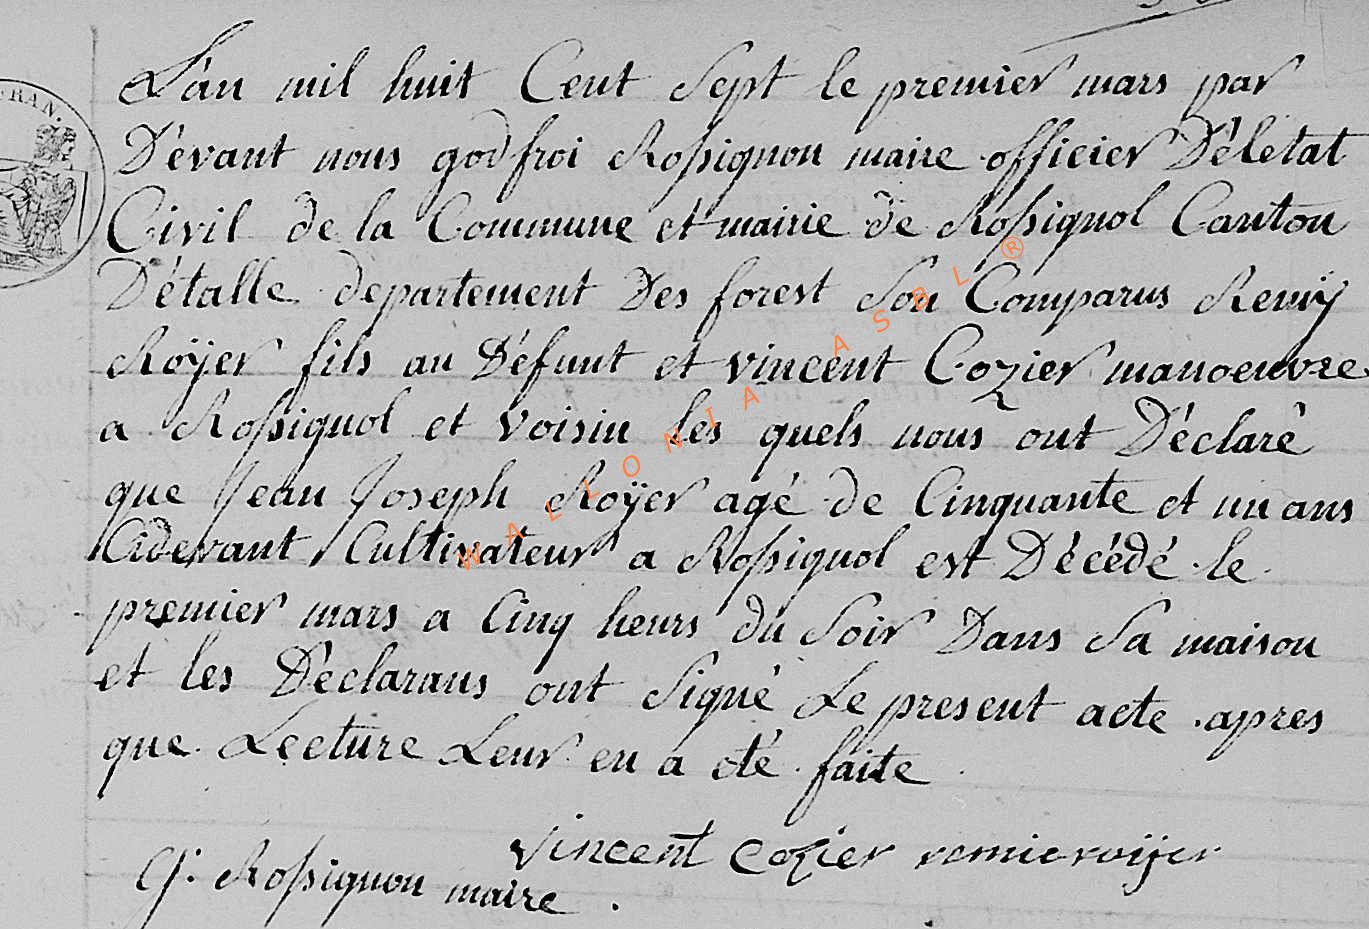 L'an mil huit Cent Sept le premier mars par
D'évant nous godfroi Rossignon maire officier D'életat
Civil de la Commune et mairie de Rossignol Canton
D'étalle departement Des forest Son Comparus Remÿ
Röÿer fils au D'éfunt et vincent Cozier manoeuvre
a Rossignol et voisin les quels nous ont D'éclaré
que Jean Joseph Roÿer agé de Cinquante et un ans
Cidevant Cultivateur a Rossignol est D'écédé le
premier mars a Cinq heurs du Soir Dans Sa maison
et les D'éclarans ont Signé Le present acte apres
que Lecture Leur en a été faite
vincent cozier remi roÿer
G. Rossignon maire.
FRAN.
WALLONIA ASBL ®